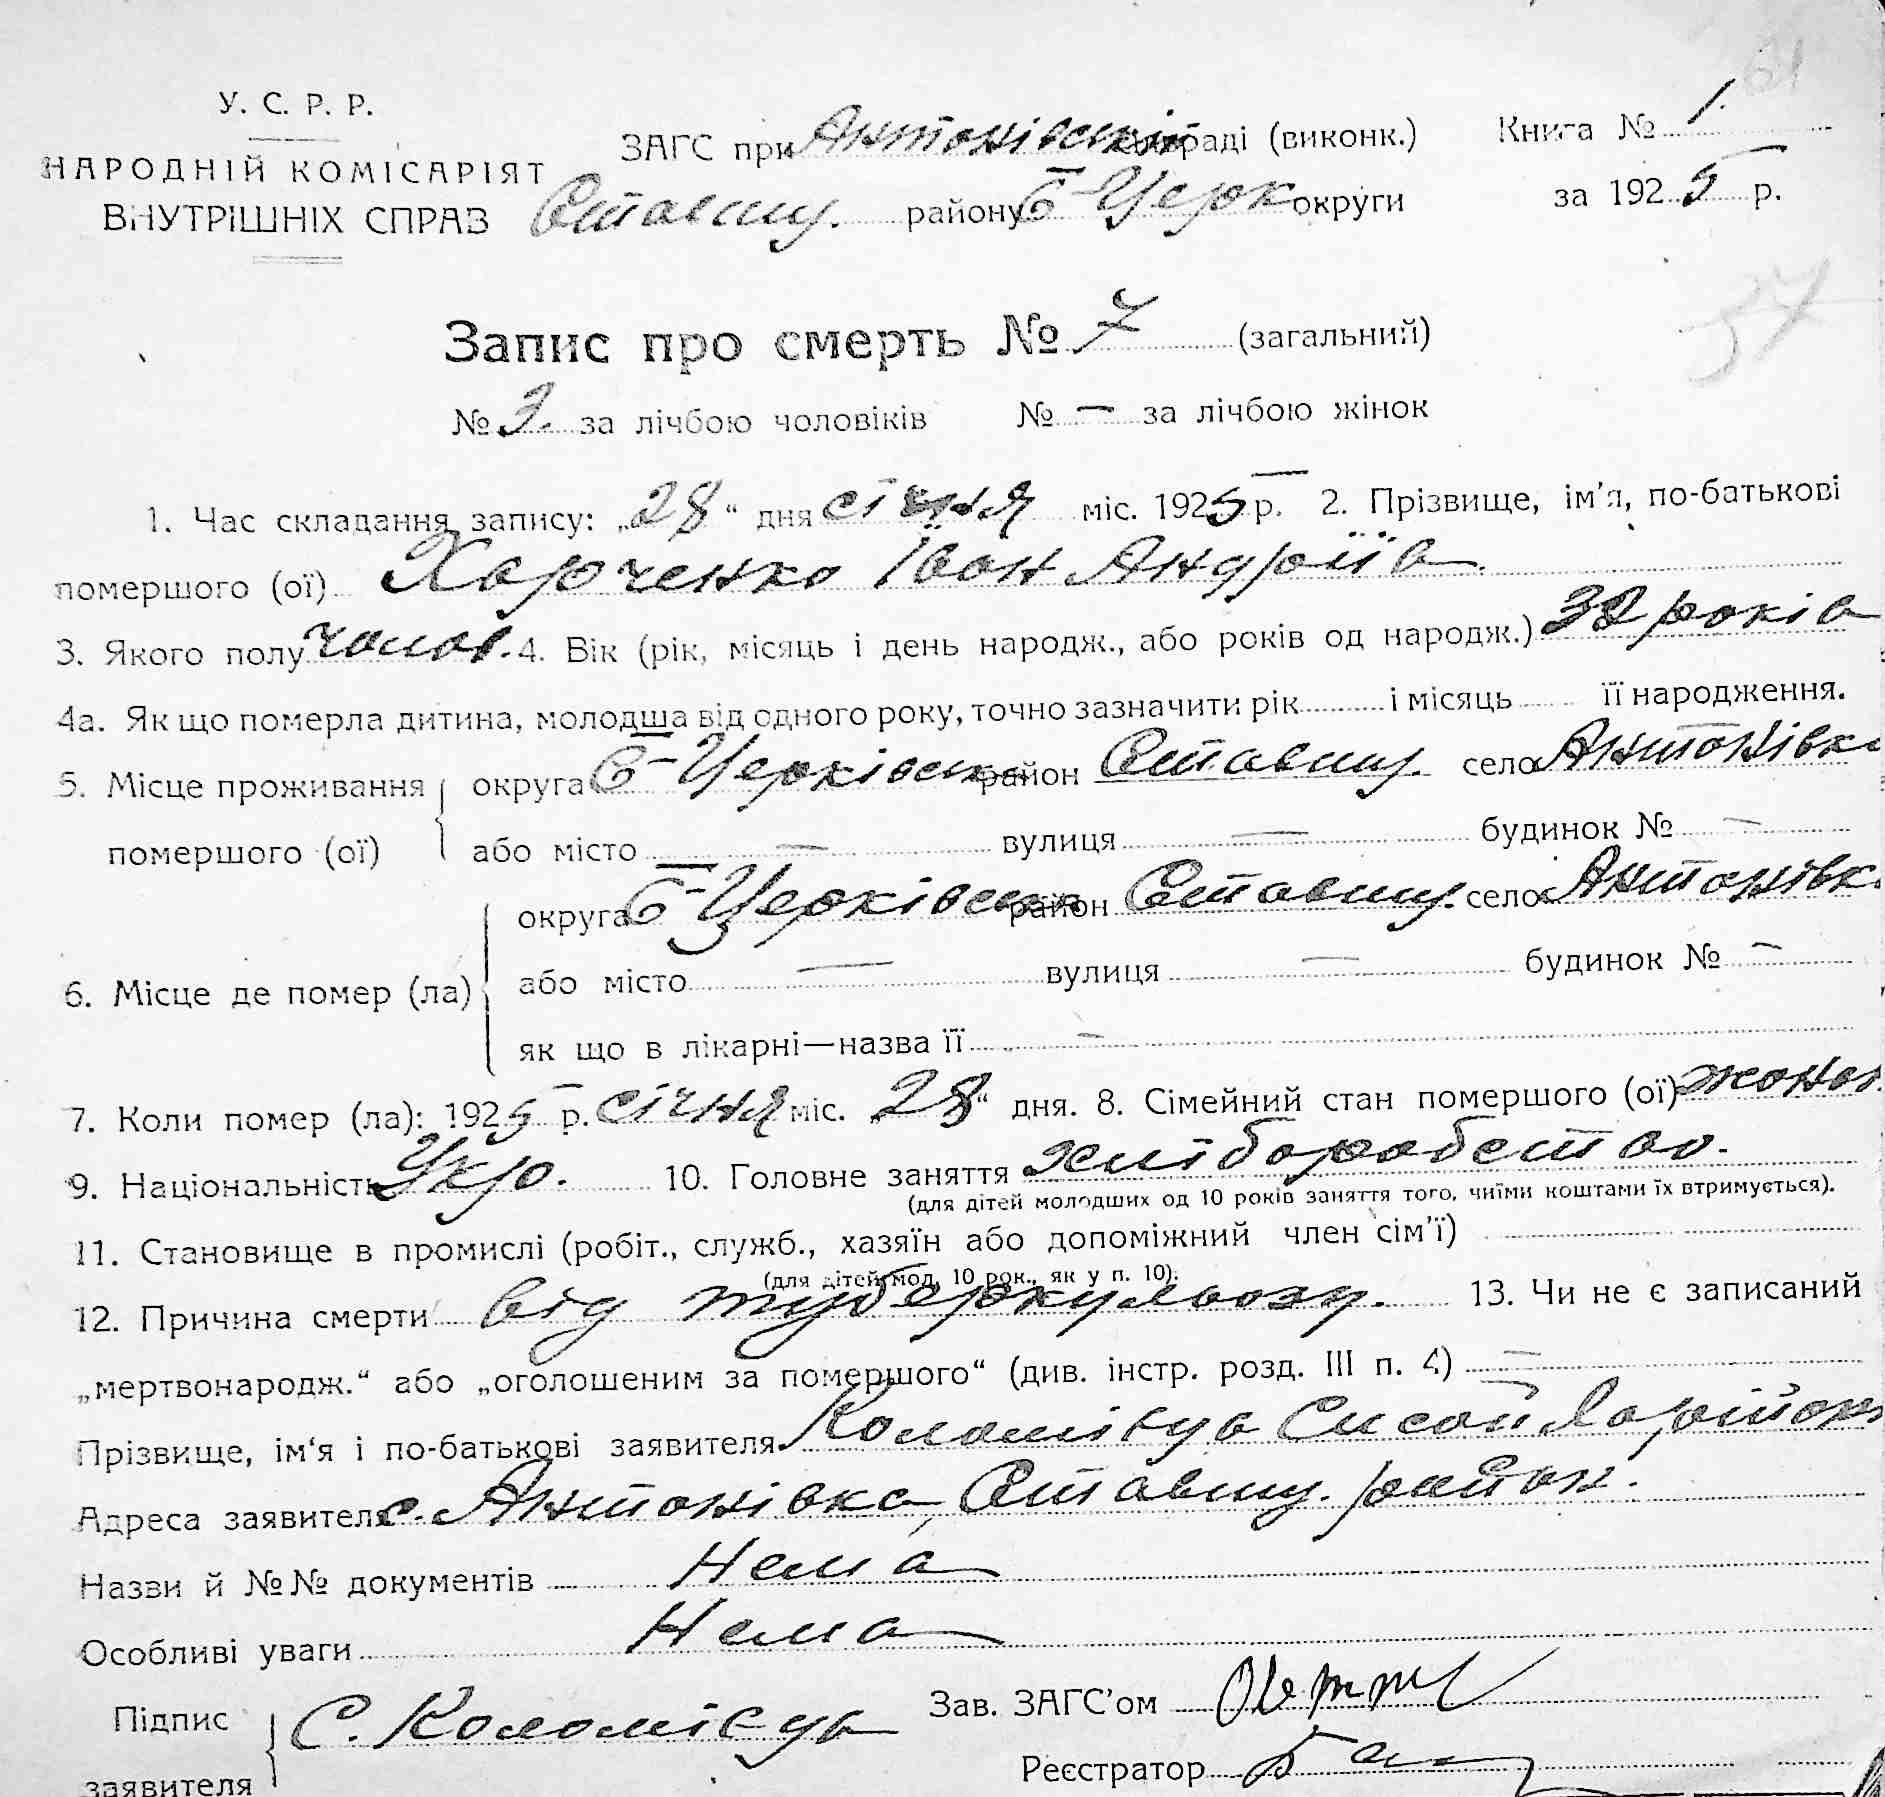 У. С. Р. Р.
НАРОДНІЙ КОМІСАРІЯТ
ВНУТРІШНІХ СПРАВ
ЗАГС при Антонівській сільраді (виконк.)
Ставищ. району Б-Церк округи
Книга № 1.
за 1925 р.
61
37
Запис про смерть № 7 (загальний)
№ 3. за лічбою чоловіків № — за лічбою жінок
1. Час складання запису: „28“ дня січня міс. 1925 р. 2. Прізвище, ім'я, по-батькові
помершого (ої) Харченко Іван Андріїв.
3. Якого полу чолов. 4. Вік (рік, місяць і день народж., або років од народж.) 32 років
4а. Як що померла дитина, молодша від одного року, точно зазначити рік і місяць її народження.
5. Місце проживання помершого (ої) округа Б-Церківська район Ставищ. село Антонівка
або місто — вулиця — будинок № —
6. Місце де помер (ла) округа Б-Церківська район Ставищ. село Антонівк.
або місто — вулиця — будинок № —
як що в лікарні—назва її —
7. Коли помер (ла): 1925 р. січня міс. „28“ дня. 8. Сімейний стан помершого (ої) жонат.
9. Національність Укр. 10. Головне заняття хліборобство.
(для дітей молодших од 10 років заняття того, чиїми коштами їх втримується).
11. Становище в промислі (робіт., служб., хазяїн або допоміжний член сім'ї)
(для дітей мол. 10 рок., як у п. 10).
12. Причина смерти від туберкульозу. 13. Чи не є записаний
„мертвонародж.“ або „оголошеним за помершого“ (див. інстр. розд. III п. 4) —
Прізвище, ім'я і по-батькові заявителя Коломієць Сисой
Адреса заявителя с. Антонівка, Ставищ. район.
Назви й №№ документів Нема
Особливі уваги Нема
Підпис заявителя С. Коломієць
Зав. ЗАГС'ом
Реєстратор